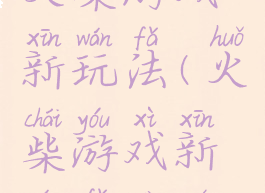 xīn wán fǎ huǒ
新玩法(火
chái yóu xì xīn
柴游戏新